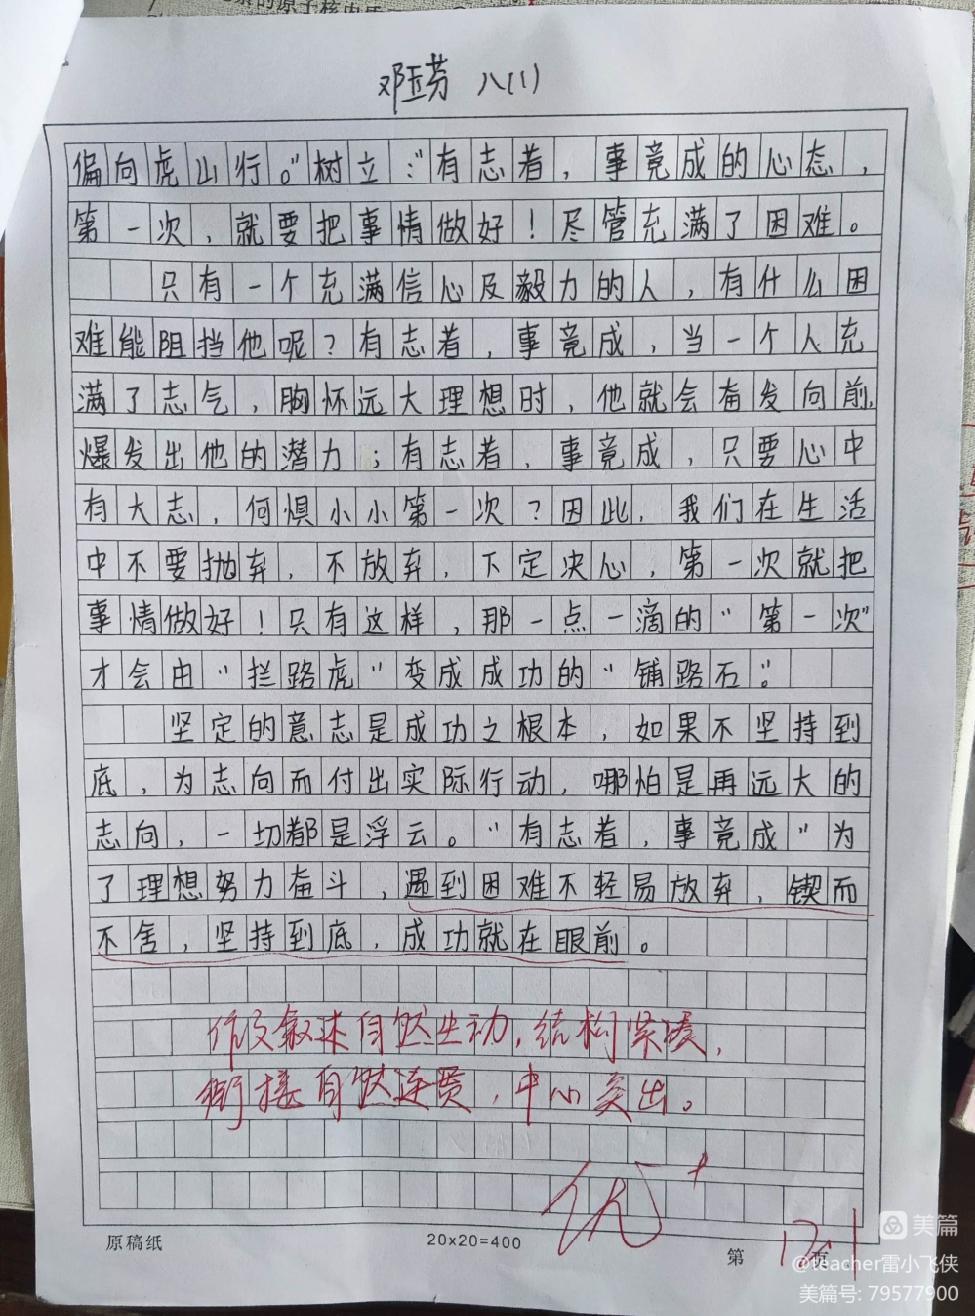 素的原子核内质
邓玉芬 八(1)
偏向虎山行。”树立：“有志者，事竟成的心态，
第一次，就要把事情做好！尽管充满了困难。
只有一个充满信心及毅力的人，有什么困
难能阻挡他呢？有志者，事竟成，当一个人充
满了志气，胸怀远大理想时，他就会奋发向前，
爆发出他的潜力；有志者，事竟成，只要心中
有大志，何惧小小第一次？因此，我们在生活
中不要抛弃，不放弃，下定决心，第一次就把
事情做好！只有这样，那一点一滴的“第一次”
才会由“拦路虎”变成成功的“铺路石”。
坚定的意志是成功之根本，如果不坚持到
底，为志向而付出实际行动，哪怕是再远大的
志向，一切都是浮云。“有志者，事竟成”为
了理想努力奋斗，遇到困难不轻易放弃，锲而
不舍，坚持到底，成功就在眼前。
作文叙述自然生动，结构紧凑，
衔接自然连贯，中心突出。
优+
12.1
原稿纸
20×20=400
第 页
美篇
@teacher雷小飞侠
美篇号: 79577900